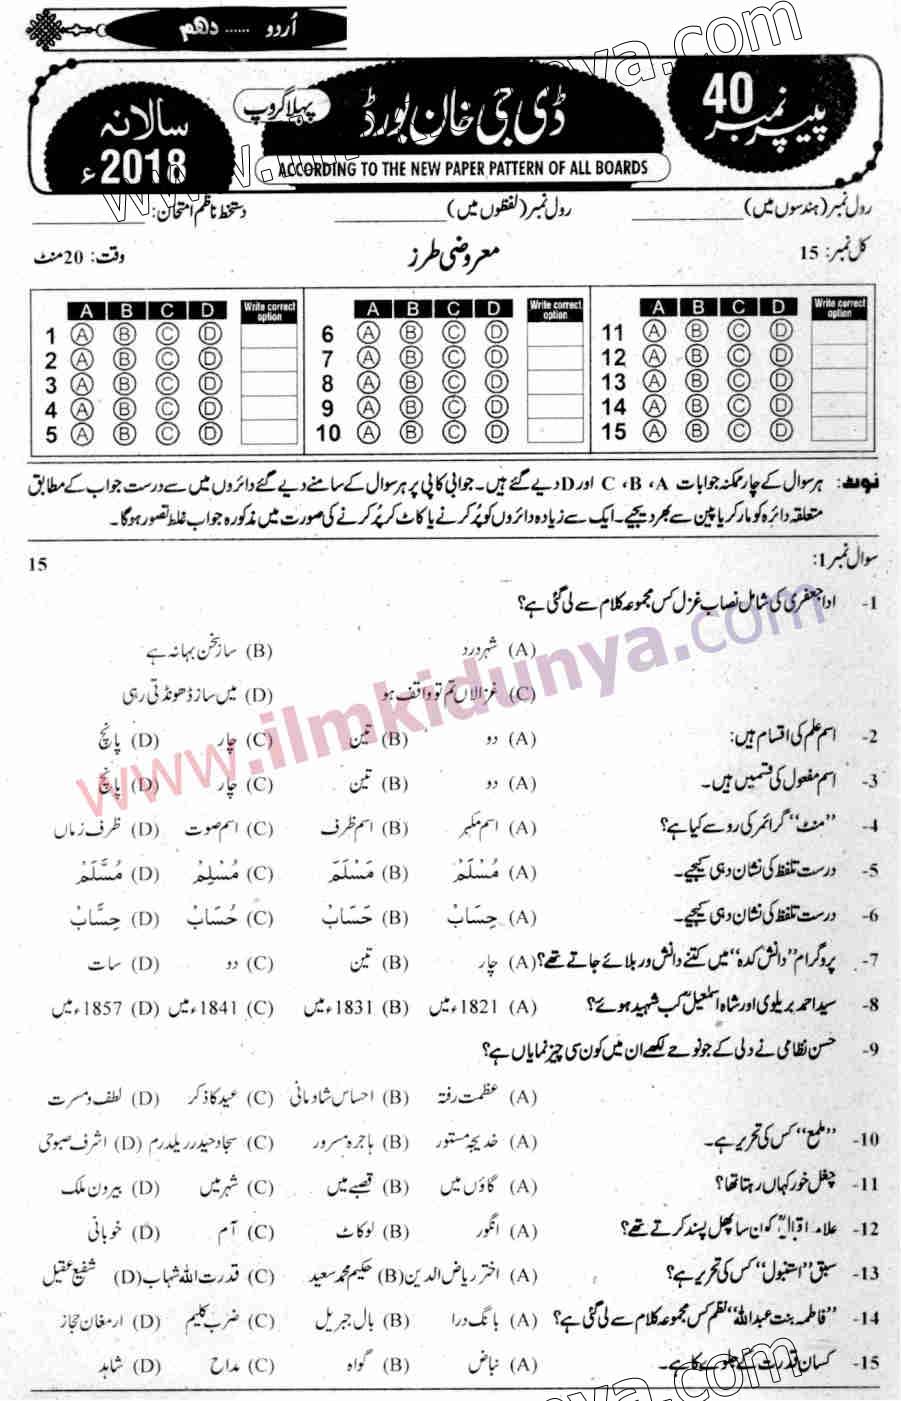 اُردو ...... دھم
پیپر نمبر 40
ڈی جی خان بورڈ
پہلا گروپ
سالانہ 2018ء
ACCORDING TO THE NEW PAPER PATTERN OF ALL BOARDS
رول نمبر (ہندسوں میں) ____________ رول نمبر (لفظوں میں) ____________ دستخط ناظم امتحان: ____________
کل نمبر: 15 معروضی طرز وقت: 20 منٹ
A B C D Write correct option A B C D Write correct option A B C D Write correct option
1 A B C D 6 A B C D 11 A B C D
2 A B C D 7 A B C D 12 A B C D
3 A B C D 8 A B C D 13 A B C D
4 A B C D 9 A B C D 14 A B C D
5 A B C D 10 A B C D 15 A B C D
نوٹ: ہر سوال کے چار ممکنہ جوابات A، B، C اور D دیے گئے ہیں۔ جوابی کاپی پر ہر سوال کے سامنے دیے گئے دائروں میں سے درست جواب کے مطابق
متعلقہ دائرہ کو مارکر یا پین سے بھر دیجیے۔ ایک سے زیادہ دائروں کو پُر کرنے یا کاٹ کر پُر کرنے کی صورت میں مذکورہ جواب غلط تصور ہوگا۔
سوال نمبر 1: 15
1- ادا جعفری کی شامل نصاب غزل کس مجموعہ کلام سے لی گئی ہے؟
(A) شہر درد (B) ساز سخن بہانہ ہے
(C) غزالاں تم تو واقف ہو (D) میں ساز ڈھونڈتی رہی
2- اسم علم کی اقسام ہیں: (A) دو (B) تین (C) چار (D) پانچ
3- اسم مفعول کی قسمیں ہیں۔ (A) دو (B) تین (C) چار (D) پانچ
4- ”منٹ“ گرائمر کی رو سے کیا ہے؟ (A) اسم مکبر (B) اسم ظرف (C) اسم صوت (D) ظرف زماں
5- درست تلفظ کی نشان دہی کیجیے۔ (A) مُسْلَمْ (B) مَسْلَمَ (C) مُسْلِمْ (D) مُسَّلَمْ
6- درست تلفظ کی نشان دہی کیجیے۔ (A) حِسَابْ (B) حَسَابْ (C) حُسَابْ (D) حِسَّابْ
7- پروگرام ”دانش کدہ“ میں کتنے دانش ور بلائے جاتے تھے؟ (A) چار (B) تین (C) دو (D) سات
8- سید احمد بریلوی اور شاہ اسمٰعیلؒ کب شہید ہوئے؟ (A) 1821ء میں (B) 1831ء میں (C) 1841ء میں (D) 1857ء میں
9- حسن نظامی نے دلی کے جو نوحے لکھے ان میں کون سی چیز نمایاں ہے؟
(A) عظمت رفتہ (B) احساس شادمانی (C) عید کا ذکر (D) لطف و مسرت
10- ”ملمع“ کس کی تحریر ہے۔ (A) خدیجہ مستور (B) ہاجرہ مسرور (C) سجاد حیدر یلدرم (D) اشرف صبوحی
11- چغل خور کہاں رہتا تھا؟ (A) گاؤں میں (B) قصبے میں (C) شہر میں (D) بیرون ملک
12- علامہ اقبالؒ کون سا پھل پسند کرتے تھے؟ (A) انگور (B) لوکاٹ (C) آم (D) خوبانی
13- سبق ”استنبول“ کس کی تحریر ہے؟ (A) اختر ریاض الدین (B) حکیم محمد سعید (C) قدرت اللہ شہاب (D) شفیع عقیل
14- ”فاطمہ بنت عبداللہ“ نظم کس مجموعہ کلام سے لی گئی ہے؟ (A) بانگ درا (B) بال جبریل (C) ضرب کلیم (D) ارمغان حجاز
15- کسان قدرت کے جلوے کا ہے۔ (A) نباض (B) گواہ (C) مداح (D) شاہد
www.ilmkidunya.com